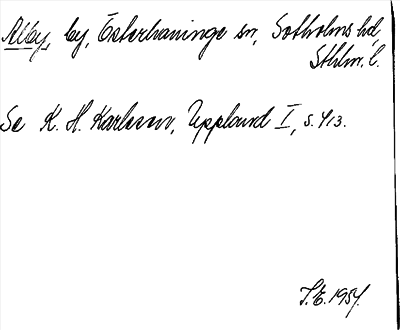 Alby, by, Österhaninge sn, Sotholms hd,
Sthlm. l.
Se K. H. Karlsson, Uppland I, s. 413.
T.E. 1954.